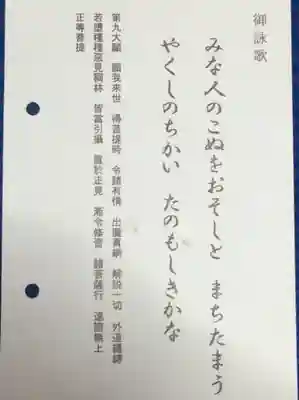 御詠歌
みな人のこぬをおそしと　まちたまう
やくしのちかい　たのもしきかな
第九大願　願我来世　得菩提時　令諸有情　出魔羂網　解脱一切　外道纏縛
若墮種種惡見稠林　皆當引攝　置於正見　漸令修習　諸菩薩行　速證無上
正等菩提